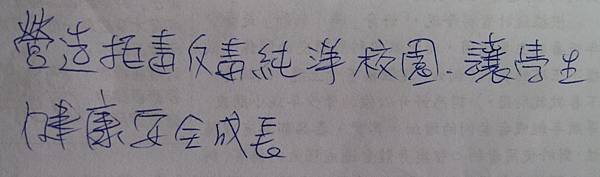 營造拒毒反毒純淨校園、讓學生
健康安全成長